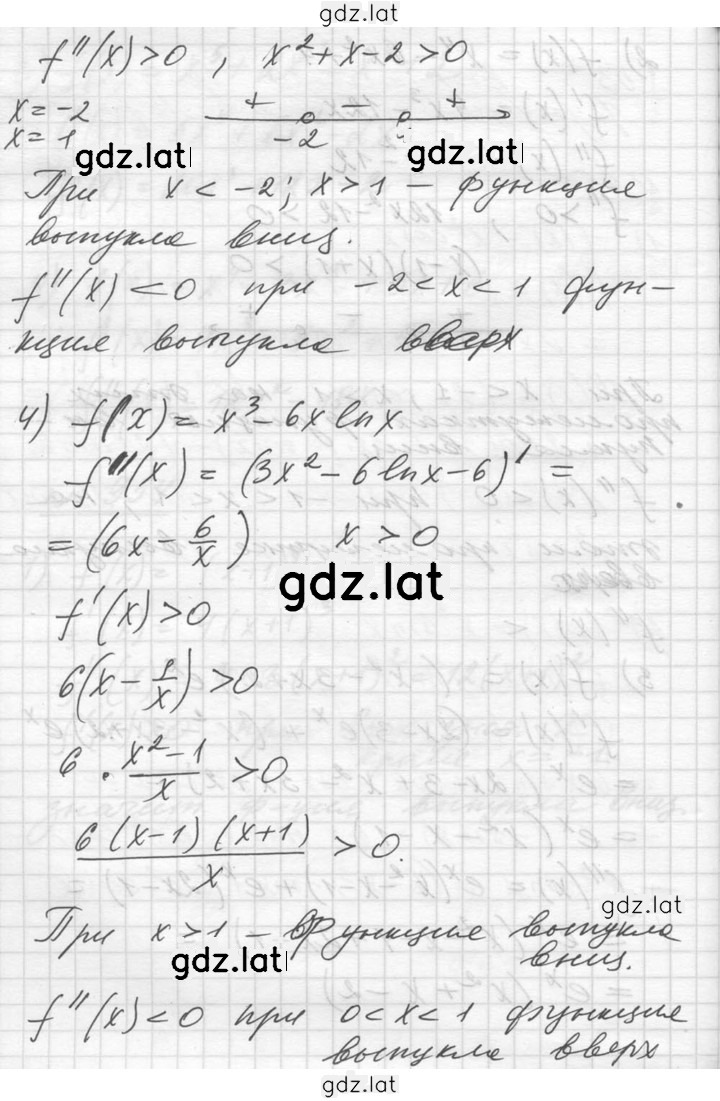 gdz.lat
f''(x)>0 , x²+x-2>0
x=-2
x=1
+ - +
-2
gdz.lat gdz.lat
При x<-2; x>1 - функция
выпукла вниз.
f''(x)<0 при -2<x<1 фун-
кция выпукла вверх
4) f(x)= x³-6x ln x
f''(x) = (3x²-6 ln x-6)' =
= (6x - 6/x) x>0
gdz.lat
f'(x)>0
6(x - 1/x) >0
6 · (x²-1)/x >0
6(x-1)(x+1)/x > 0.
gdz.lat
При x>1 - функция выпукла
вниз.
gdz.lat
f''(x)<0 при 0<x<1 функция
выпукла вверх
gdz.lat